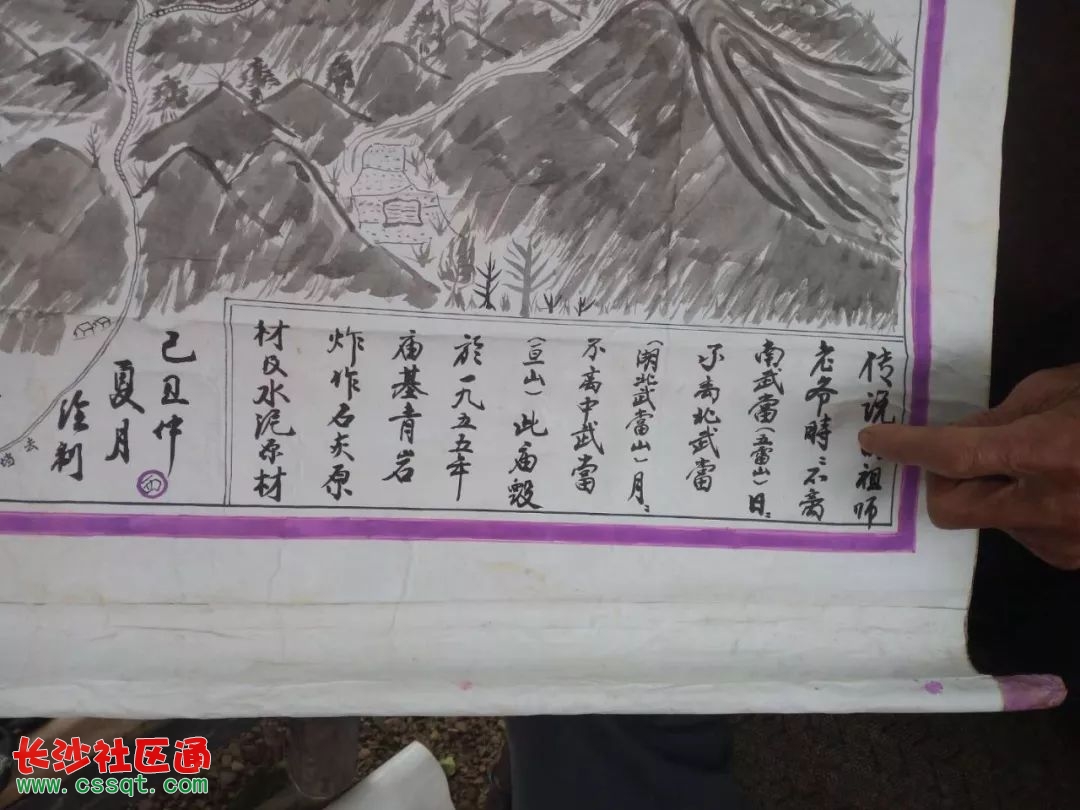 传说 祖师
老爷時〻不离
南武當(五雷山)日〻
不离北武當
(湖北武當山)月〻
不离中武當
(亘山)此庙毁
於一九五五年
庙基青岩
炸作石灰原
材及水泥原材
己丑仲
夏月
绘制
去
长沙社区通
www.cssqt.com